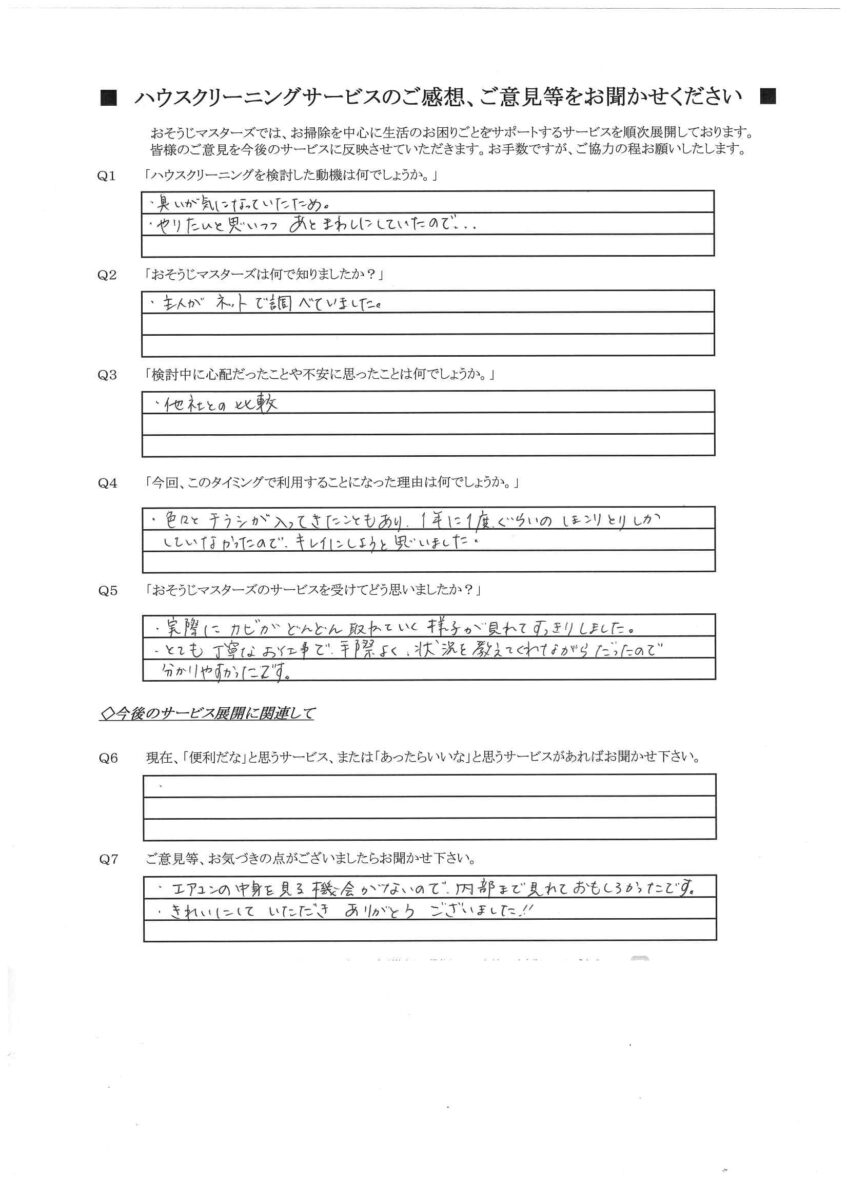 ■ ハウスクリーニングサービスのご感想、ご意見等をお聞かせください ■
おそうじマスターズでは、お掃除を中心に生活のお困りごとをサポートするサービスを順次展開しております。
皆様のご意見を今後のサービスに反映させていただきます。お手数ですが、ご協力の程お願いしたします。
Q1 「ハウスクリーニングを検討した動機は何でしょうか。」
・臭いが気になっていたため。
・やりたいと思いつつ あとまわしにしていたので...
Q2 「おそうじマスターズは何で知りましたか？」
・主人が ネットで調べていました。
Q3 「検討中に心配だったことや不安に思ったことは何でしょうか。」
・他社との比較
Q4 「今回、このタイミングで利用することになった理由は何でしょうか。」
・色々と チラシが入ってきたこともあり、1年に1度ぐらいの ほこりとりしか
していなかったので、キレイにしようと思いました!
Q5 「おそうじマスターズのサービスを受けてどう思いましたか？」
・実際に カビが どんどん 取れていく 様子が見れて すっきりしました。
・とても 丁寧な お仕事で、手際よく、状況を教えてくれながらだったので
分かりやすかったです。
◇今後のサービス展開に関連して
Q6 現在、「便利だな」と思うサービス、または「あったらいいな」と思うサービスがあればお聞かせ下さい。
・
Q7 ご意見等、お気づきの点がございましたらお聞かせ下さい。
・エアコンの中身を見る機会がないので、内部まで見れておもしろかったです。
・きれいにして いただき ありがとう ございました!!